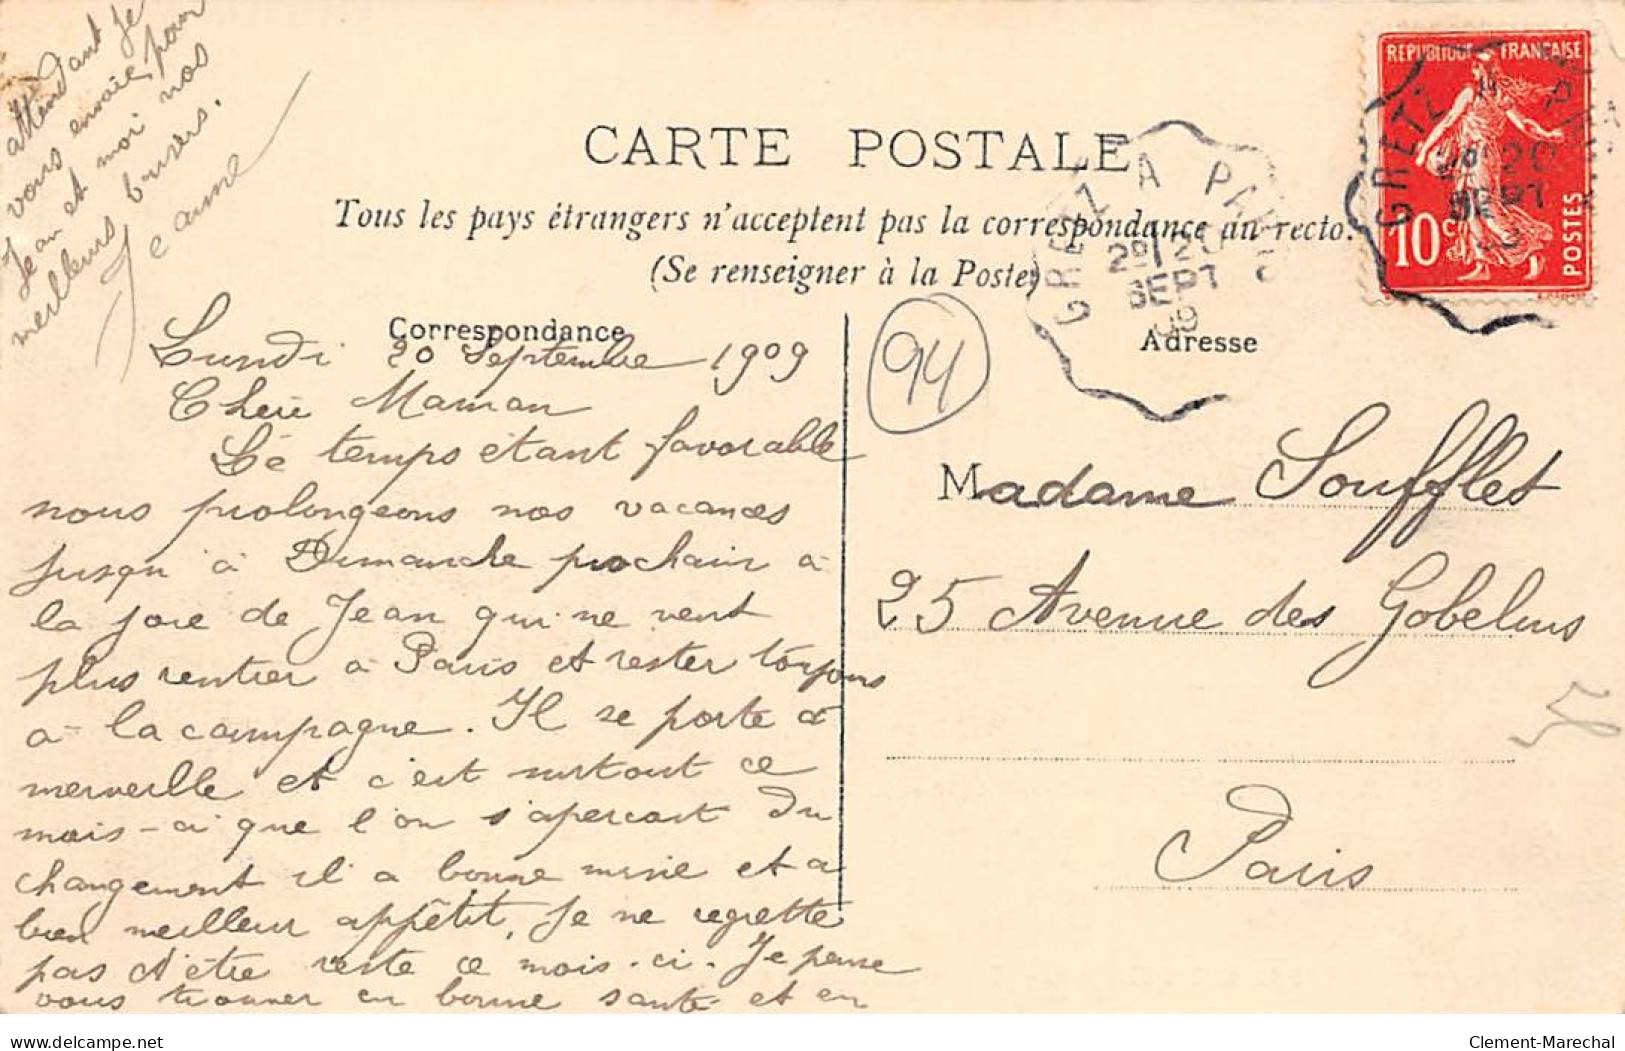 CARTE POSTALE
Tous les pays étrangers n'acceptent pas la correspondance au recto.
(Se renseigner à la Poste)
Correspondance
Adresse
Lundi 20 Septembre 1909
Chère Maman
Le temps étant favorable
nous prolongeons nos vacances
jusqu'à Dimanche prochain à
la joie de Jean qui ne veut
plus rentrer à Paris et rester toujours
à la campagne. Il se porte à
merveille et c'est surtout ce
mois-ci que l'on s'apercoit du
changement il a bonne mine et a
bien meilleur appétit, je ne regrette
pas d'être resté ce mois-ci. Je pense
vous trouver en bonne santé et en
attendant je
vous envoie pour
Jean et moi nos
meilleurs baisers.
Jeanne
94
Madame Soufflet
25 Avenue des Gobelins
Paris
REPUBLIQUE FRANÇAISE
10 c
POSTES
GRETZ A PARIS
2º 20
SEPT
09
GRETZ A PARIS
2º 20
SEPT
09
delcampe.net
Clement-Marechal